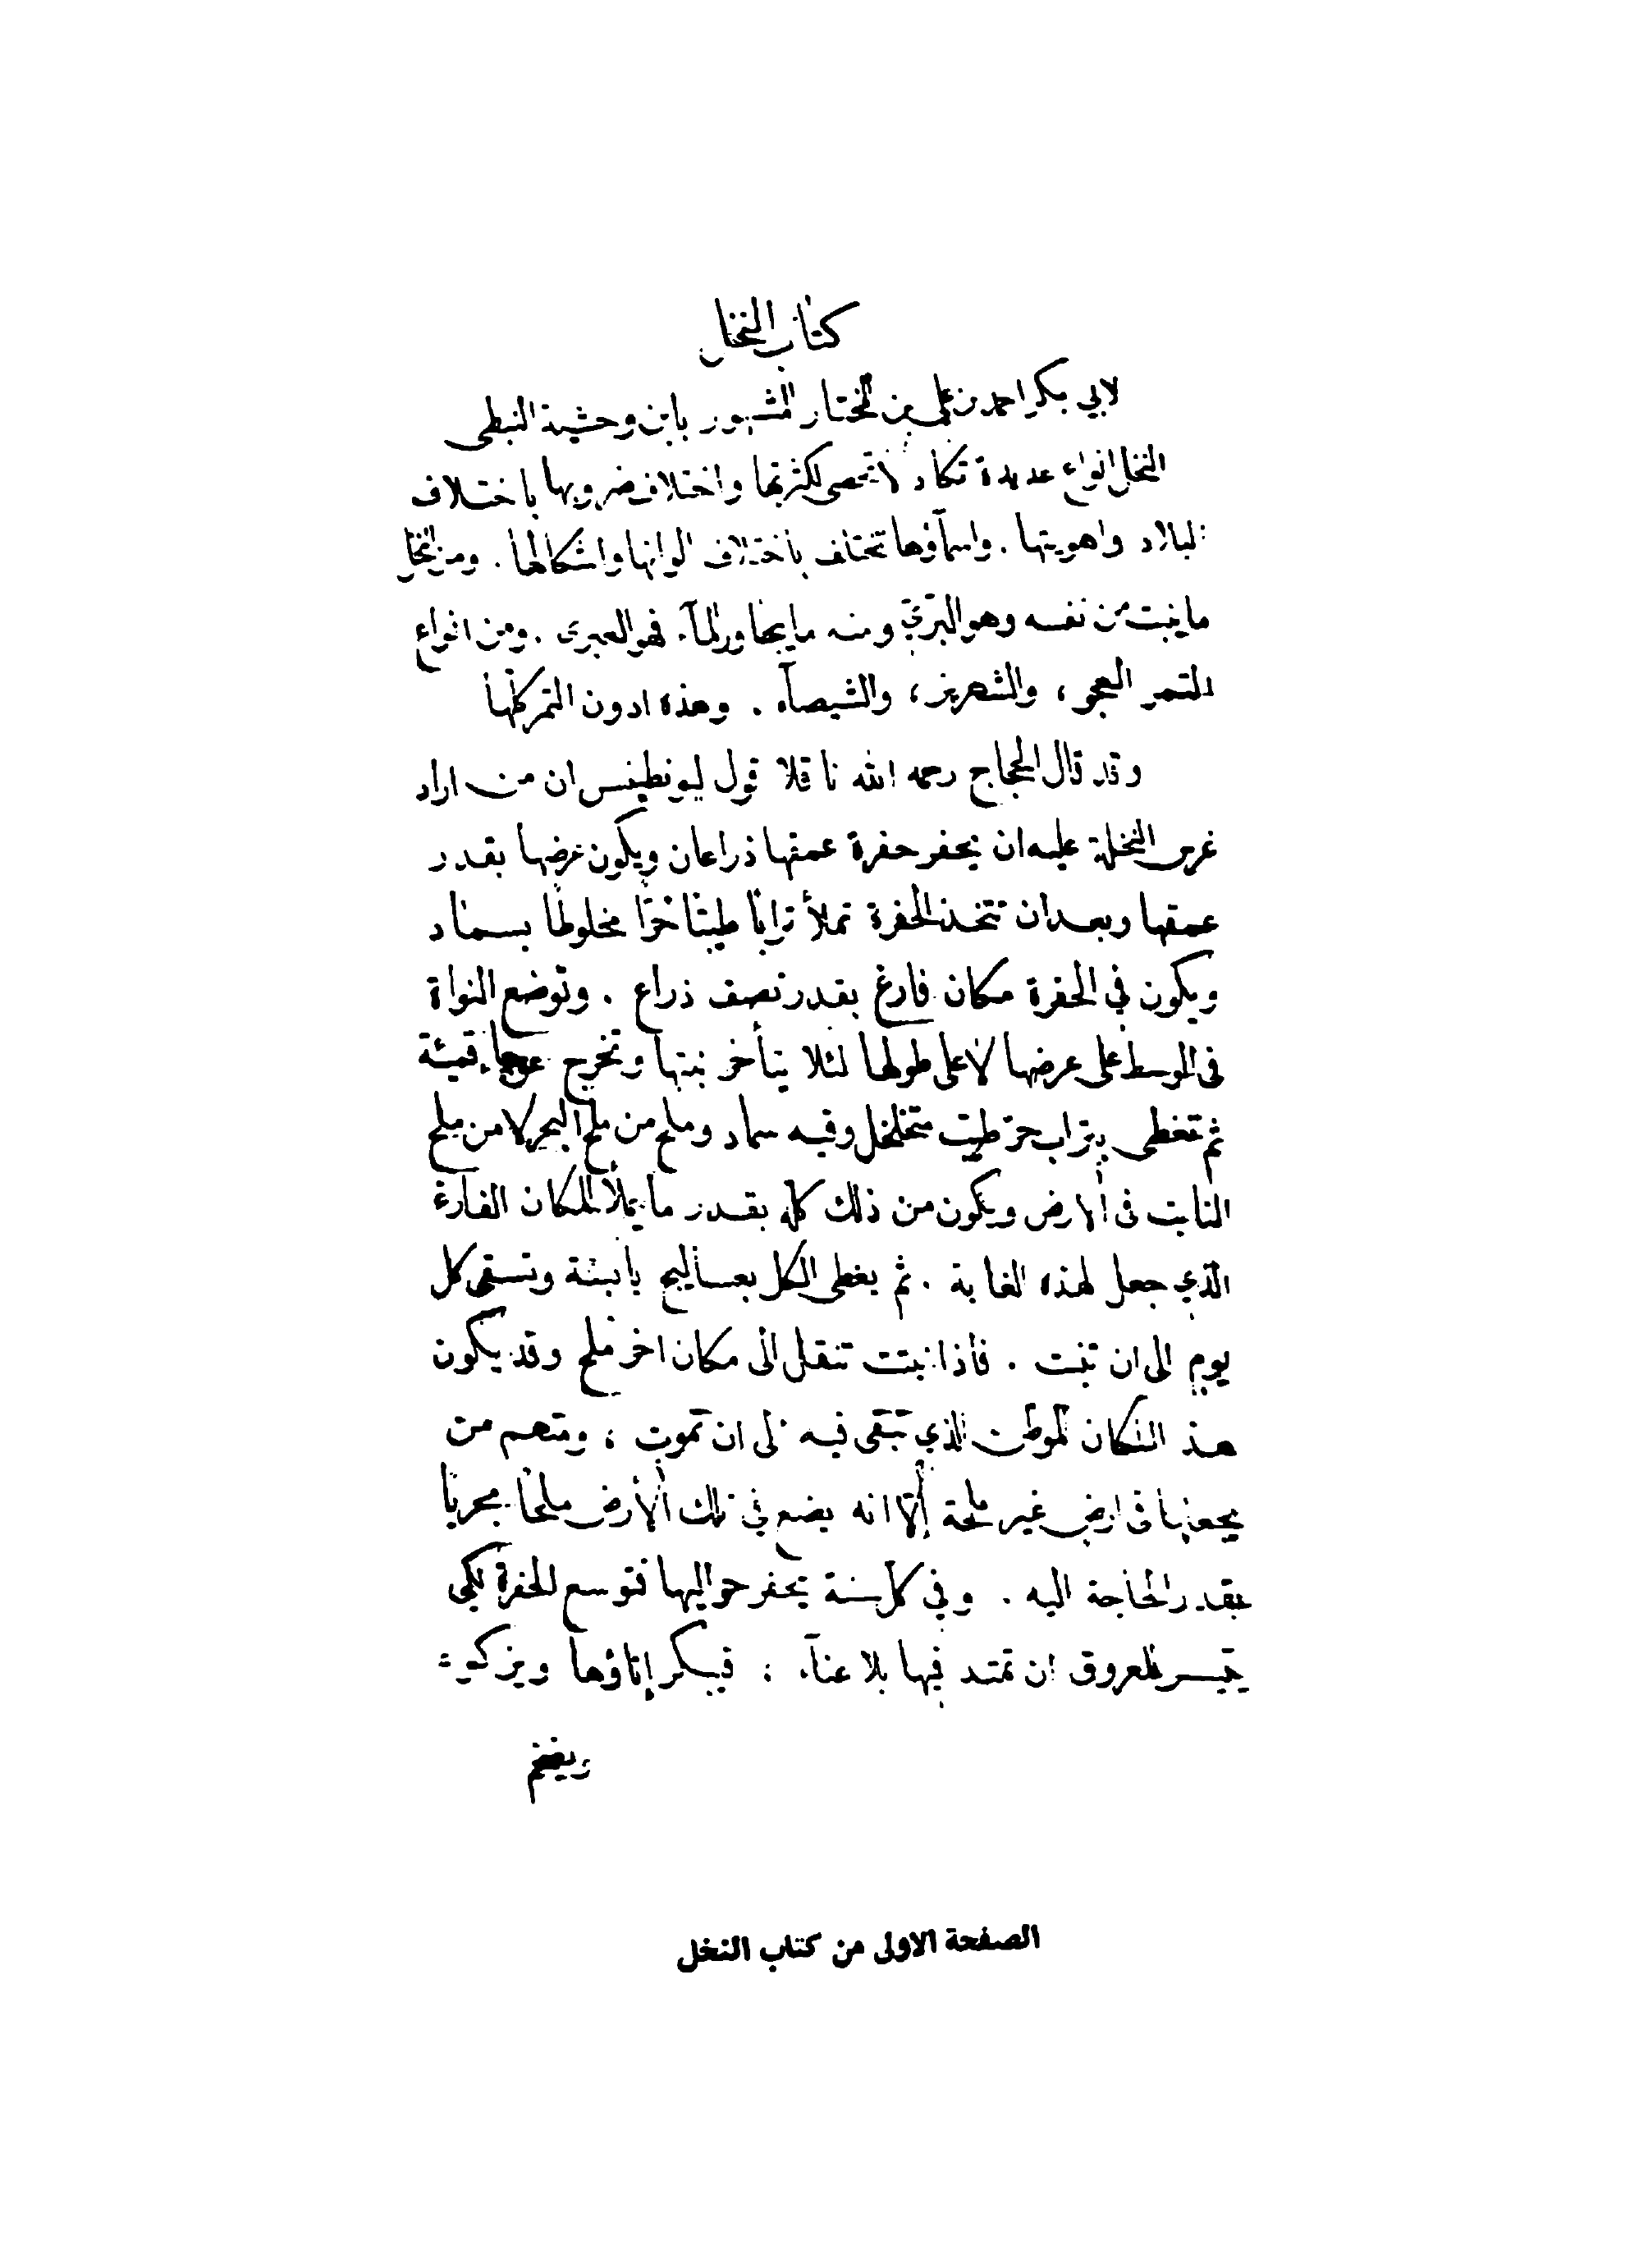 كتاب النخل
لابي بكر احمد بن علي بن المختار المشهور بابن وحشية النبطي
النخل انواع عديدة تكاد لا تحصى لكثرتها واختلاف ضروبها باختلاف
البلاد واهويتها . واسمآؤها تختلف باختلاف الوانها واشكالها . ومن النخل
ما ينبت من نفسه وهو البرّيّ ومنه ما يجاور المآء فهو العبرى . ومن انواع
التمر العجو ، والشهريز ، والشيصآء . وهذه ادون التمر كلها
وقد قال الحجاج رحمه الله ناقلا قول ليونطينس ان من اراد
غرس النخلة عليه ان يحفر حفرة عمقها ذراعان ويكون عرضها بقدر
عمقها وبعد ان تتخذ الحفرة تملأ ترابا طيبّا حرّا مخلوطا بسماد
ويكون في الحفرة مكان فارغ بقدر نصف ذراع . وتوضع النواة
فى الوسط على عرضها لا على طولها لئلا يتأخر نبتها وتخرج عوجا قميئة
ثم تغطى بتراب حرّ طيّب متخلخل وفيه سماد وملح من ملح البحر لا من ملح
النابت فى الارض ويكون من ذلك كله بقدر ما يملأ المكان الفارغ
الّذي جعل لهذه الغابة . ثم يغطى الكل بعساليج يابسة وتسقى كل
يوم الى ان تنبت . فأذا نبتت تنقل الى مكان اخر ملح وقد يكون
هذ المكان الموطن الذي تبقى فيه الى ان تموت ، ومنهم من
يجعلها فى ارض غير ملحة إلّا انه يضع في تلك الأرض ملحا بحريا
بقدر الحاجة اليه . وفي كل سنة يحفر حواليها فتوسع للحفرة لكي
يتيسر للعروق ان تمتد فيها بلا عنآء ؛ فيبكر إتاؤها ويزكو
ويضخم
الصفحة الاولى من كتاب النخل